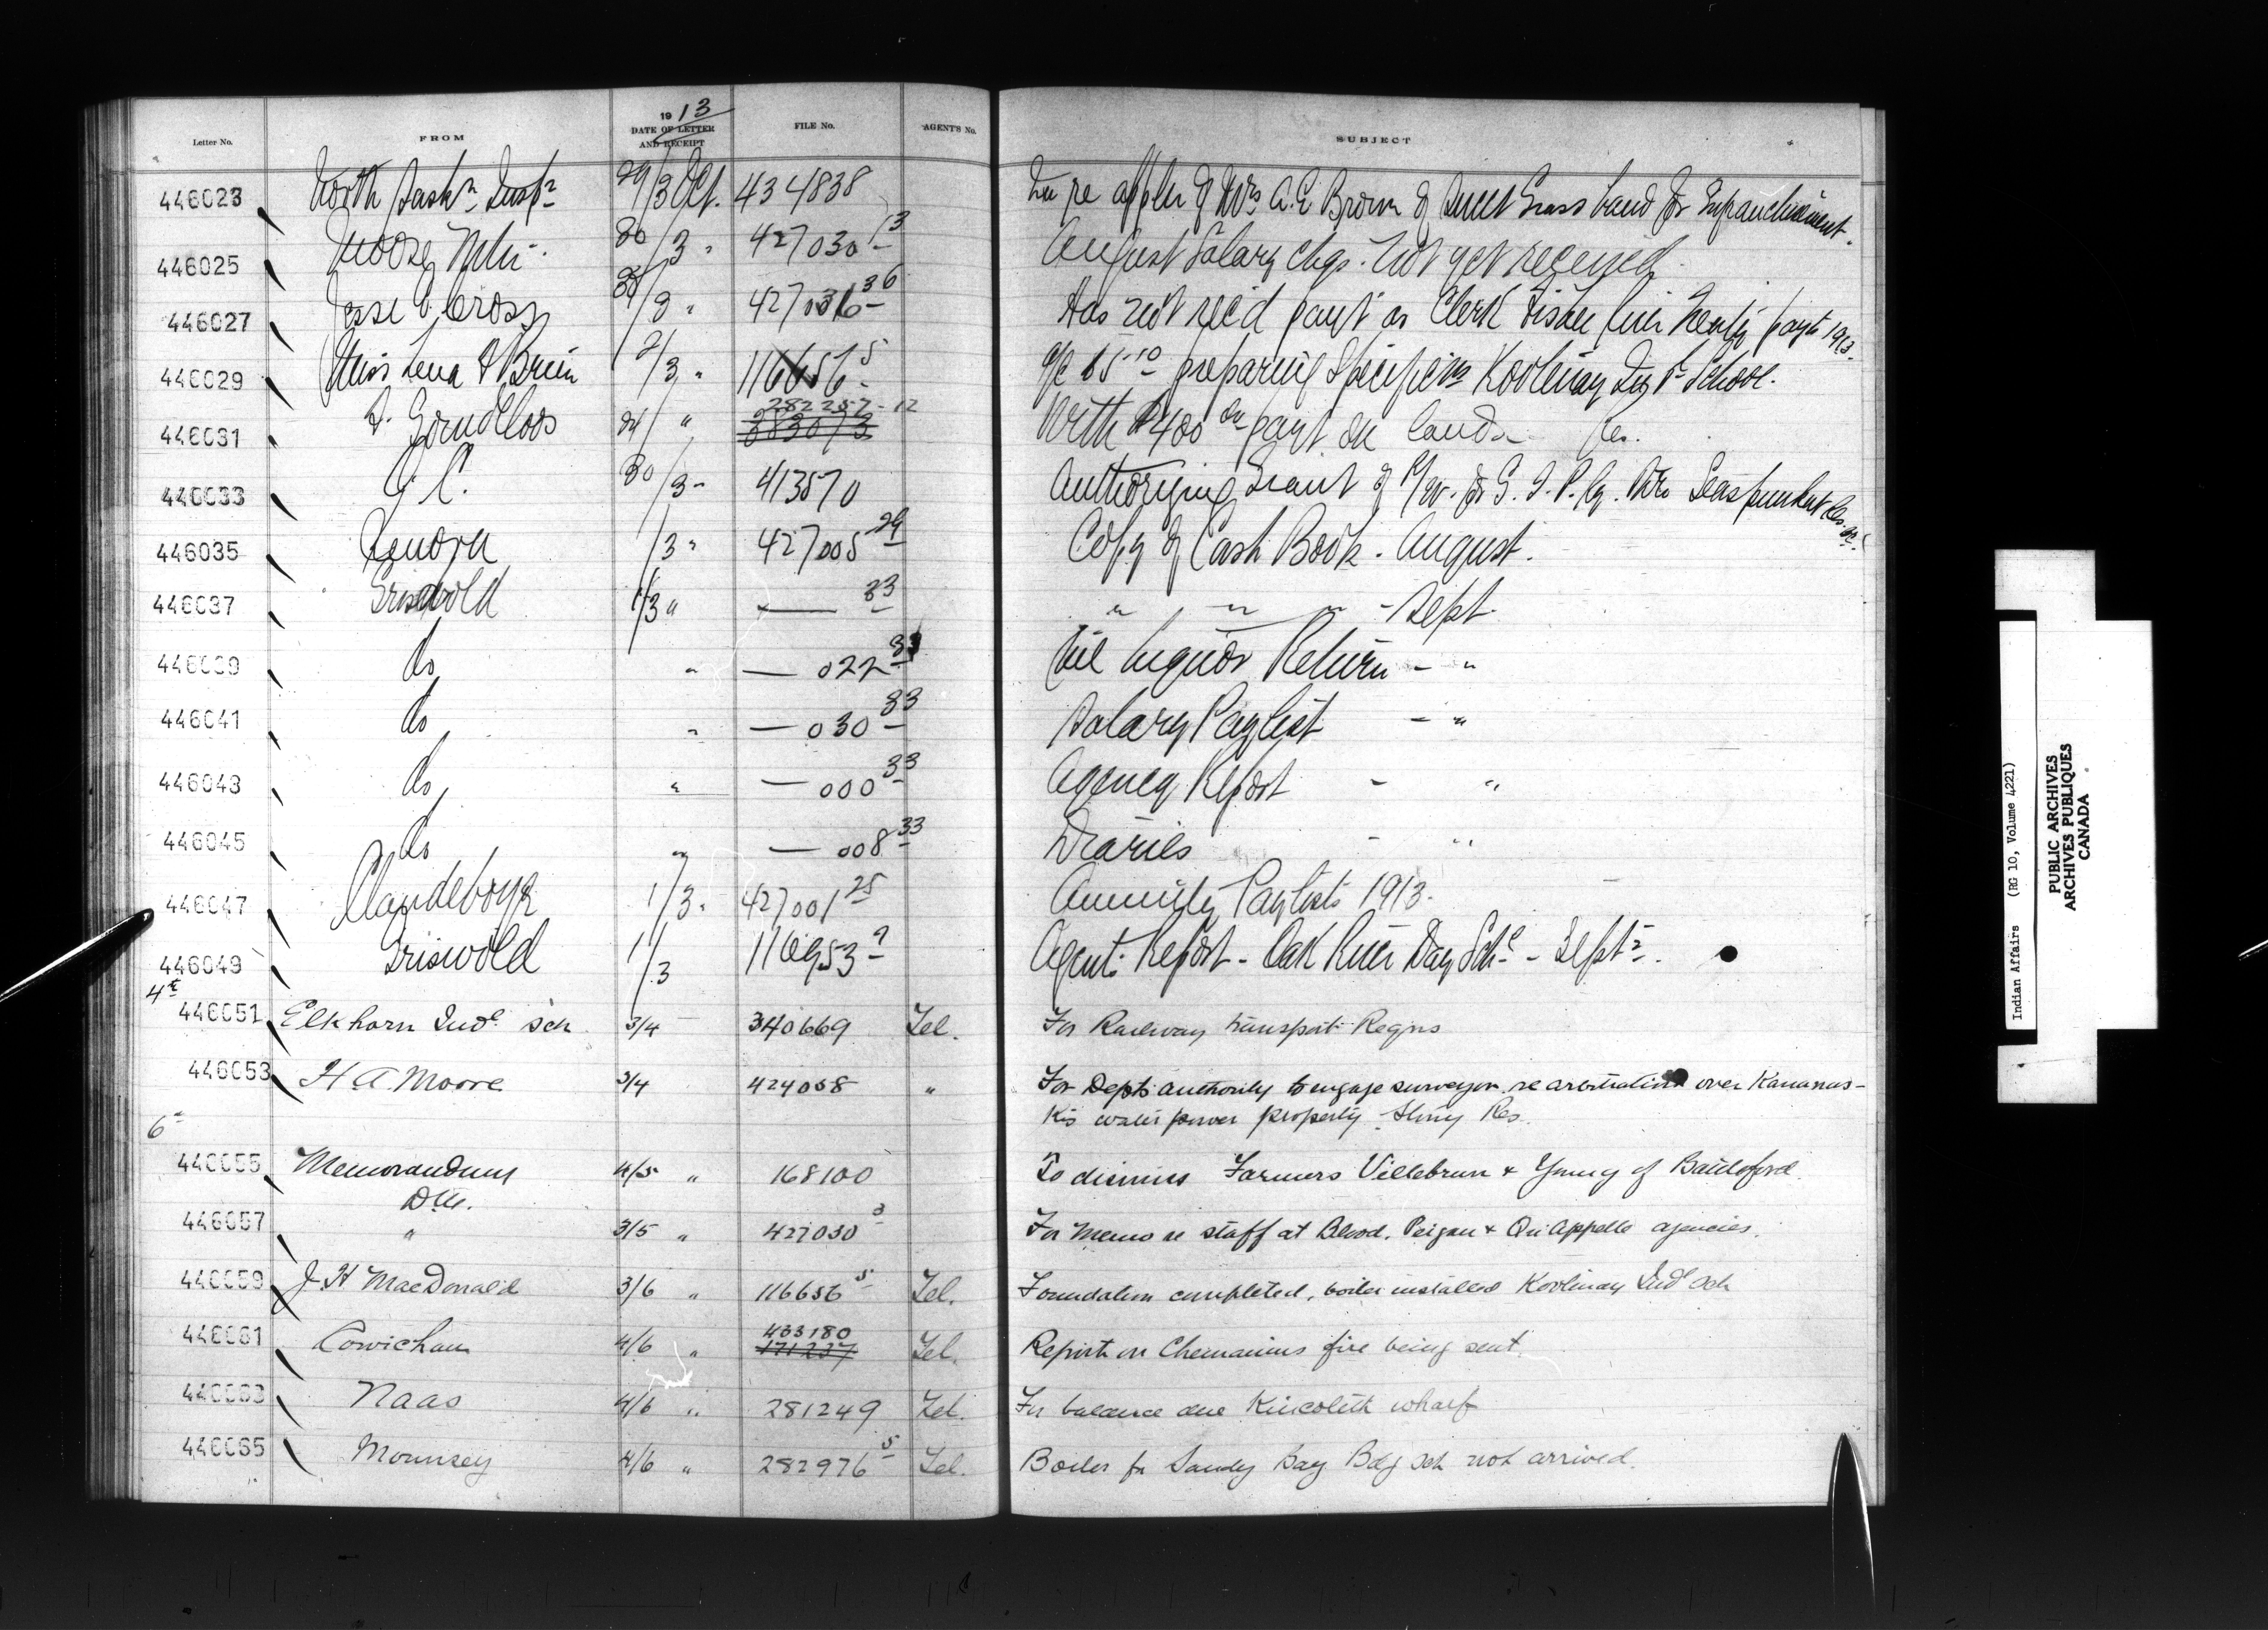 1913
Letter No. FROM DATE OF LETTER AND RECEIPT FILE No. AGENT'S No. SUBJECT
446023 North Sask. Insp. 29/3 Oct. 434838 re appln of Mrs A.E. Brown of Sweet Grass band for Enfranchisement.
446025 30/3 " 427030 13 August Salary chqs. not yet received
446027 Jesse Cross /3 " 36 Has not rec'd payt as Clerk Fisher River Treaty payts 1913.
446029 Miss Lena /3 " 116656 5 a/c preparing Specifications Kootenay Ind. School.
446031 24/ " 282257-12 With $400 payt on land Res.
446033 O.C. 30/3 " 413570 Authorizing Grant of R/W. for G.T.P. Ry. Res.
446035 Kenora 1/3 " 427005 29 Copy of Cash Book. August.
446037 Griswold 1/3 " — 33 " " " - Sept.
446039 do " — 022 33 Nil Liquor Return - "
446041 do " — 030 33 Salary Paylist - "
446043 do " — 000 33 Agency Report - "
446045 do " — 008 33 Diaries - "
446047 Clandeboye 1/3 " 427001 25 Annuity Paylists 1913.
446049 Griswold 1/3 116953 2 Agents Report - Oak River Day Schl - Sept.
4th
446051 Elkhorn Indl Sch 3/4 340669 Tel. For Railway transport Regina
446053 H A Moore 3/4 424058 " For Depts authority to engage surveyor re arbitration over Kananas-
kis water power property, Stony Res.
6th
446055 Memorandum 4/5 " 168100 To dismiss Farmers Villebrun & Young of Battleford.
D.M.
446057 " 3/5 " 427030 3 For memo re staff at Blood, Peigan & Qu'Appelle agencies.
446059 J H MacDonald 3/6 " 116656 5 Tel. Foundation completed, boiler installed Kootenay Indl Sch
446061 Cowichan 4/6 " 433180 171237 Tel. Report on Chemainus fire being sent.
446063 Naas 4/6 " 281249 Tel. For balance due Kincolith wharf
446065 Mounsey 4/6 " 282976 5 Tel. Boiler for Sandy Bay Bdg Sch not arrived.
Indian Affairs (RG 10, Volume 4221)
PUBLIC ARCHIVES
ARCHIVES PUBLIQUES
CANADA